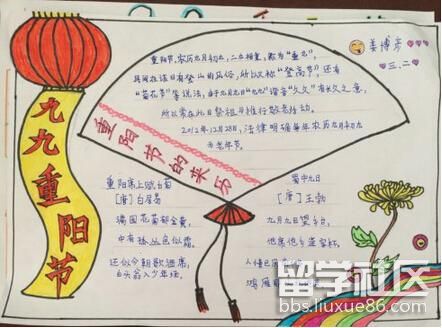 九九重阳节
重阳节,农历九月初九,二九相重,称为"重九",
民间在该日有登山的风俗,所以又称"登高节"。还有
"菊花节"等说法,由于九月九日"九九"谐音"久久"有长久之意,
所以常在此日祭祖与推行敬老活动。
2012年12月28日,法律明确每年农历九月初九
为老年节。
重阳节的来历
姜博彦
三、二
重阳席上赋白菊
[唐]白居易
满园花菊郁金黄,
中有孤丛色似霜。
还似今朝歌酒席,
白头翁入少年场。
蜀中九日
[唐]王勃
九月九日望乡台,
他席他乡送客杯。
人情已
鸿雁
留学社区
bbs.liuxue86.com